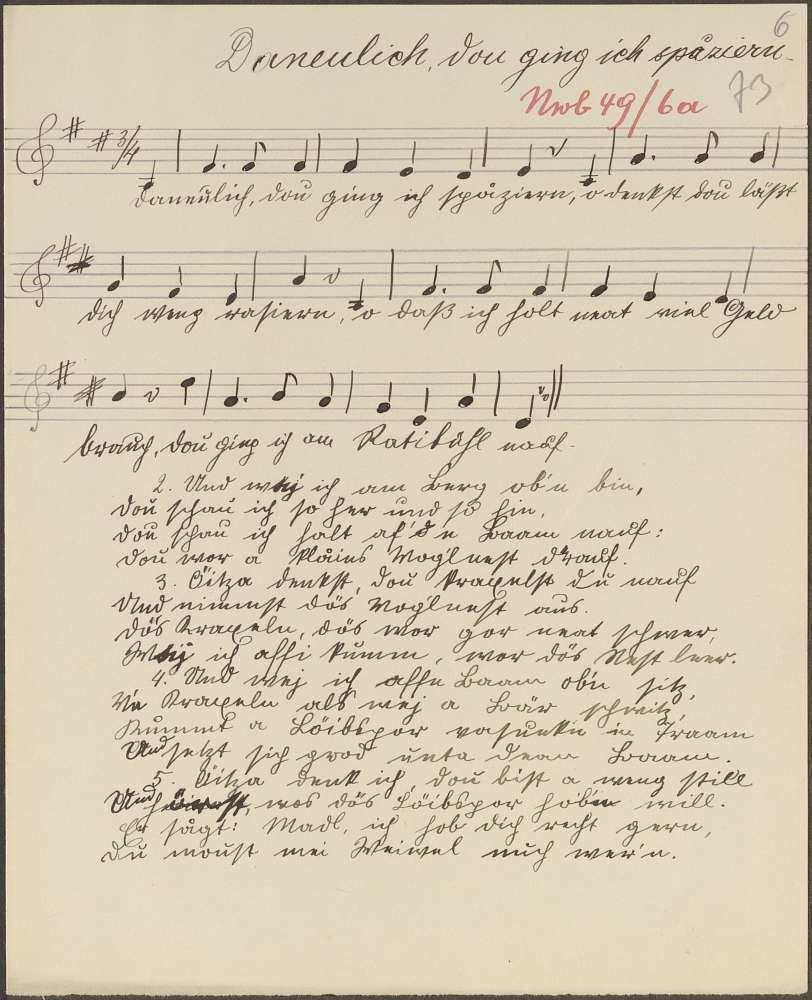 6
Daneulich, dou ging ich spåziern.
Nwb 49/6a 73
3/4
Daneulich, dou ging ich spåziern, o denkst dou läßt
dich weng rasiern, o daß ich holt neat viel Geld
brauch, dou gieng ich am Ratibühl nauf.
2. Und wej ich am Berg ob'n bin,
Dou schau ich so her und so hin,
Dou schau ich halt af d'n Baam nauf:
Dou wor a klåins Vog'lnest drauf.
3. Öitza denkst, dou kraxelst du nauf
Und nimmst dös Vog'lnest aus.
Dös Kraxeln, dös wor gor neat schwer,
Wej ich affi kumm, wor dös Nest leer.
4. Und wej ich affn Baam ob'n sitz,
V'n Kraxeln als wej a Bär schwitz,
Kummt a Löibspor in Traam
Und setzt sich grod unta dean Baam.
5. Öitza denk ich, dou bist a weng still
Und wos dös Löibspor hob'n will.
Er sågt: Madl, ich hob dich recht gern,
Du moust mei Weiwel nuch wer'n.